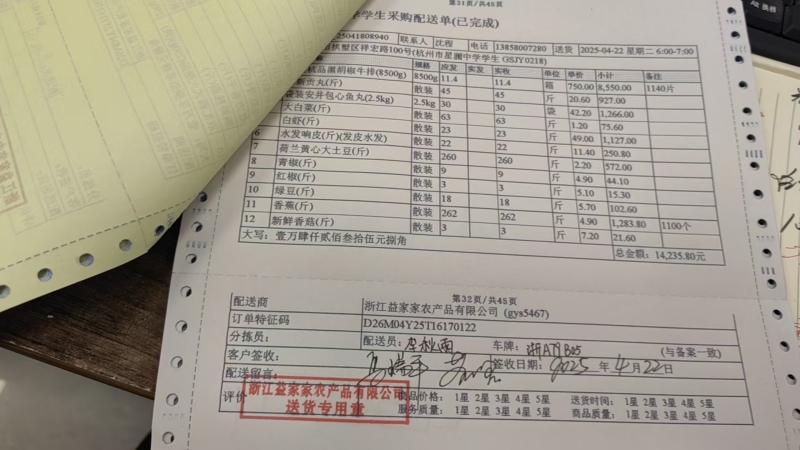 第31页/共45页
学生采购配送单(已完成)
25041808940 联系人 沈程 电话 13858007280 送货 2025-04-22 星期二 6:00-7:00
拱墅区祥宏路100号(杭州市星澜中学学生 GSJY0218)
规格 应发 实发 实收 单位 单价 小计 备注
品黑胡椒牛排(8500g) 8500g 11.4 11.4 箱 750.00 8,550.00 1140片
贡丸(斤) 散装 45 45 斤 20.60 927.00
袋装安井包心鱼丸(2.5kg) 2.5kg 30 30 袋 42.20 1,266.00
大白菜(斤) 散装 63 63 斤 1.20 75.60
白虾(斤) 散装 23 23 斤 49.00 1,127.00
6 水发响皮(斤)(发皮水发) 散装 22 22 斤 11.40 250.80
7 荷兰黄心大土豆(斤) 散装 260 260 斤 2.20 572.00
8 青椒(斤) 散装 9 9 斤 4.90 44.10
9 红椒(斤) 散装 3 3 斤 5.10 15.30
10 绿豆(斤) 散装 18 18 斤 5.70 102.60
11 香蕉(斤) 散装 262 262 斤 4.90 1,283.80 1100个
12 新鲜香菇(斤) 散装 3 3 斤 7.20 21.60
大写：壹万肆仟贰佰叁拾伍元捌角 总金额：14,235.80元
第32页/共45页
配送商 浙江益家家农产品有限公司 (gys5467)
订单特征码 D26M04Y25T16170122
分拣员： 配送员： 李秋雨 车牌： 浙A79B05 (与备案一致)
客户签收： 签收日期： 2025 年 4 月 22 日
配送留言：
浙江益家家农产品有限公司
送货专用章
评价 商品价格： 1星 2星 3星 4星 5星 送货时间： 1星 2星 3星 4星 5星
服务质量： 1星 2星 3星 4星 5星 商品质量： 1星 2星 3星 4星 5星